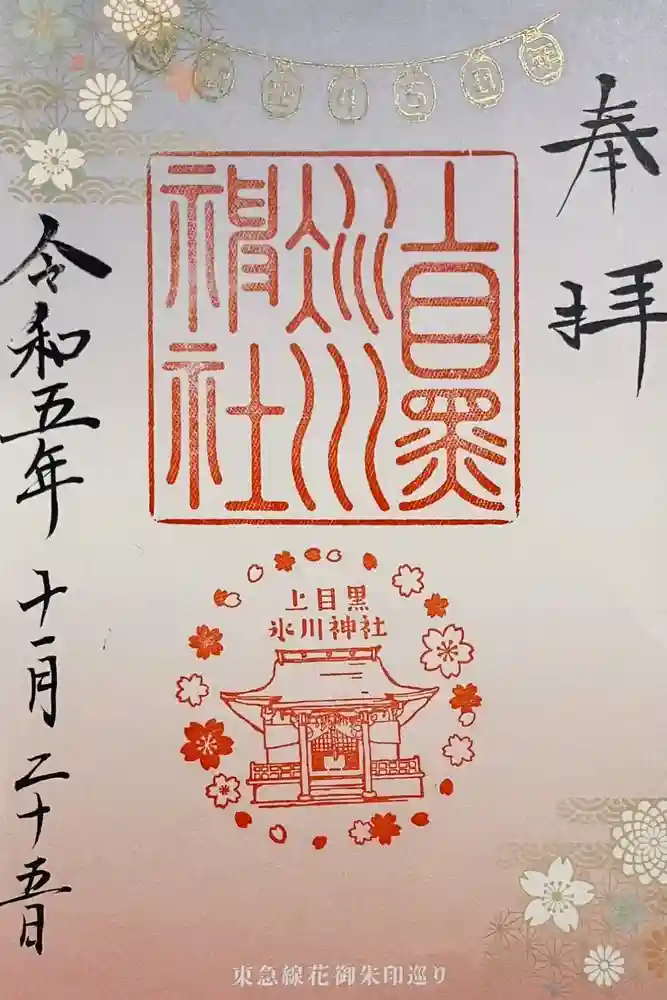 奉拝
上目黒
氷川
神社
上目黒
氷川神社
令和五年十一月二十五日
東急線花御朱印巡り